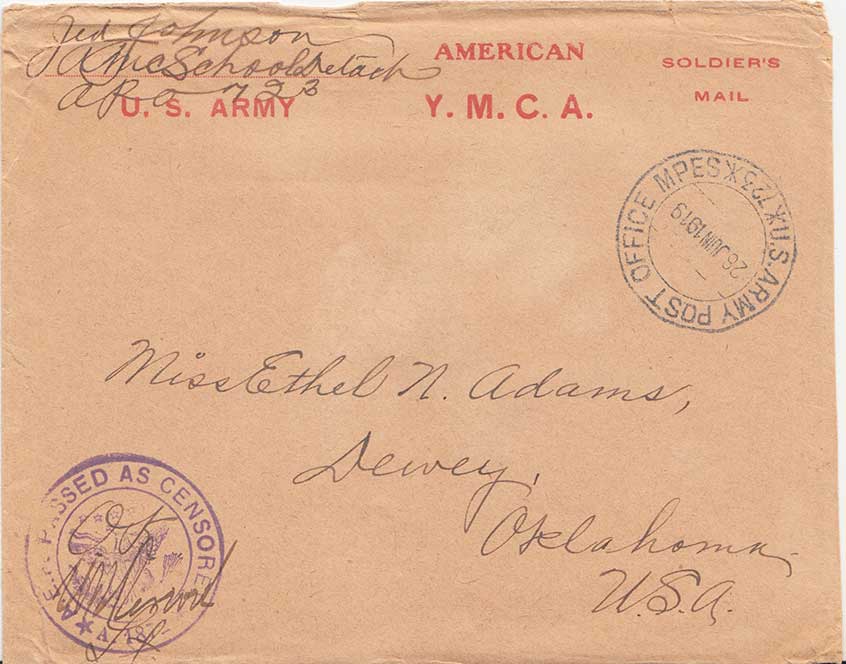 Ted Johnson
AMC School Detach
A P O 723
U. S. ARMY
AMERICAN
Y. M. C. A.
SOLDIER'S
MAIL
U.S. ARMY POST OFFICE MPES * 723 *
28 JUN 1919
Miss Ethel N. Adams,
Dewey,
Oklahoma
U.S.A.
PASSED AS CENSORED